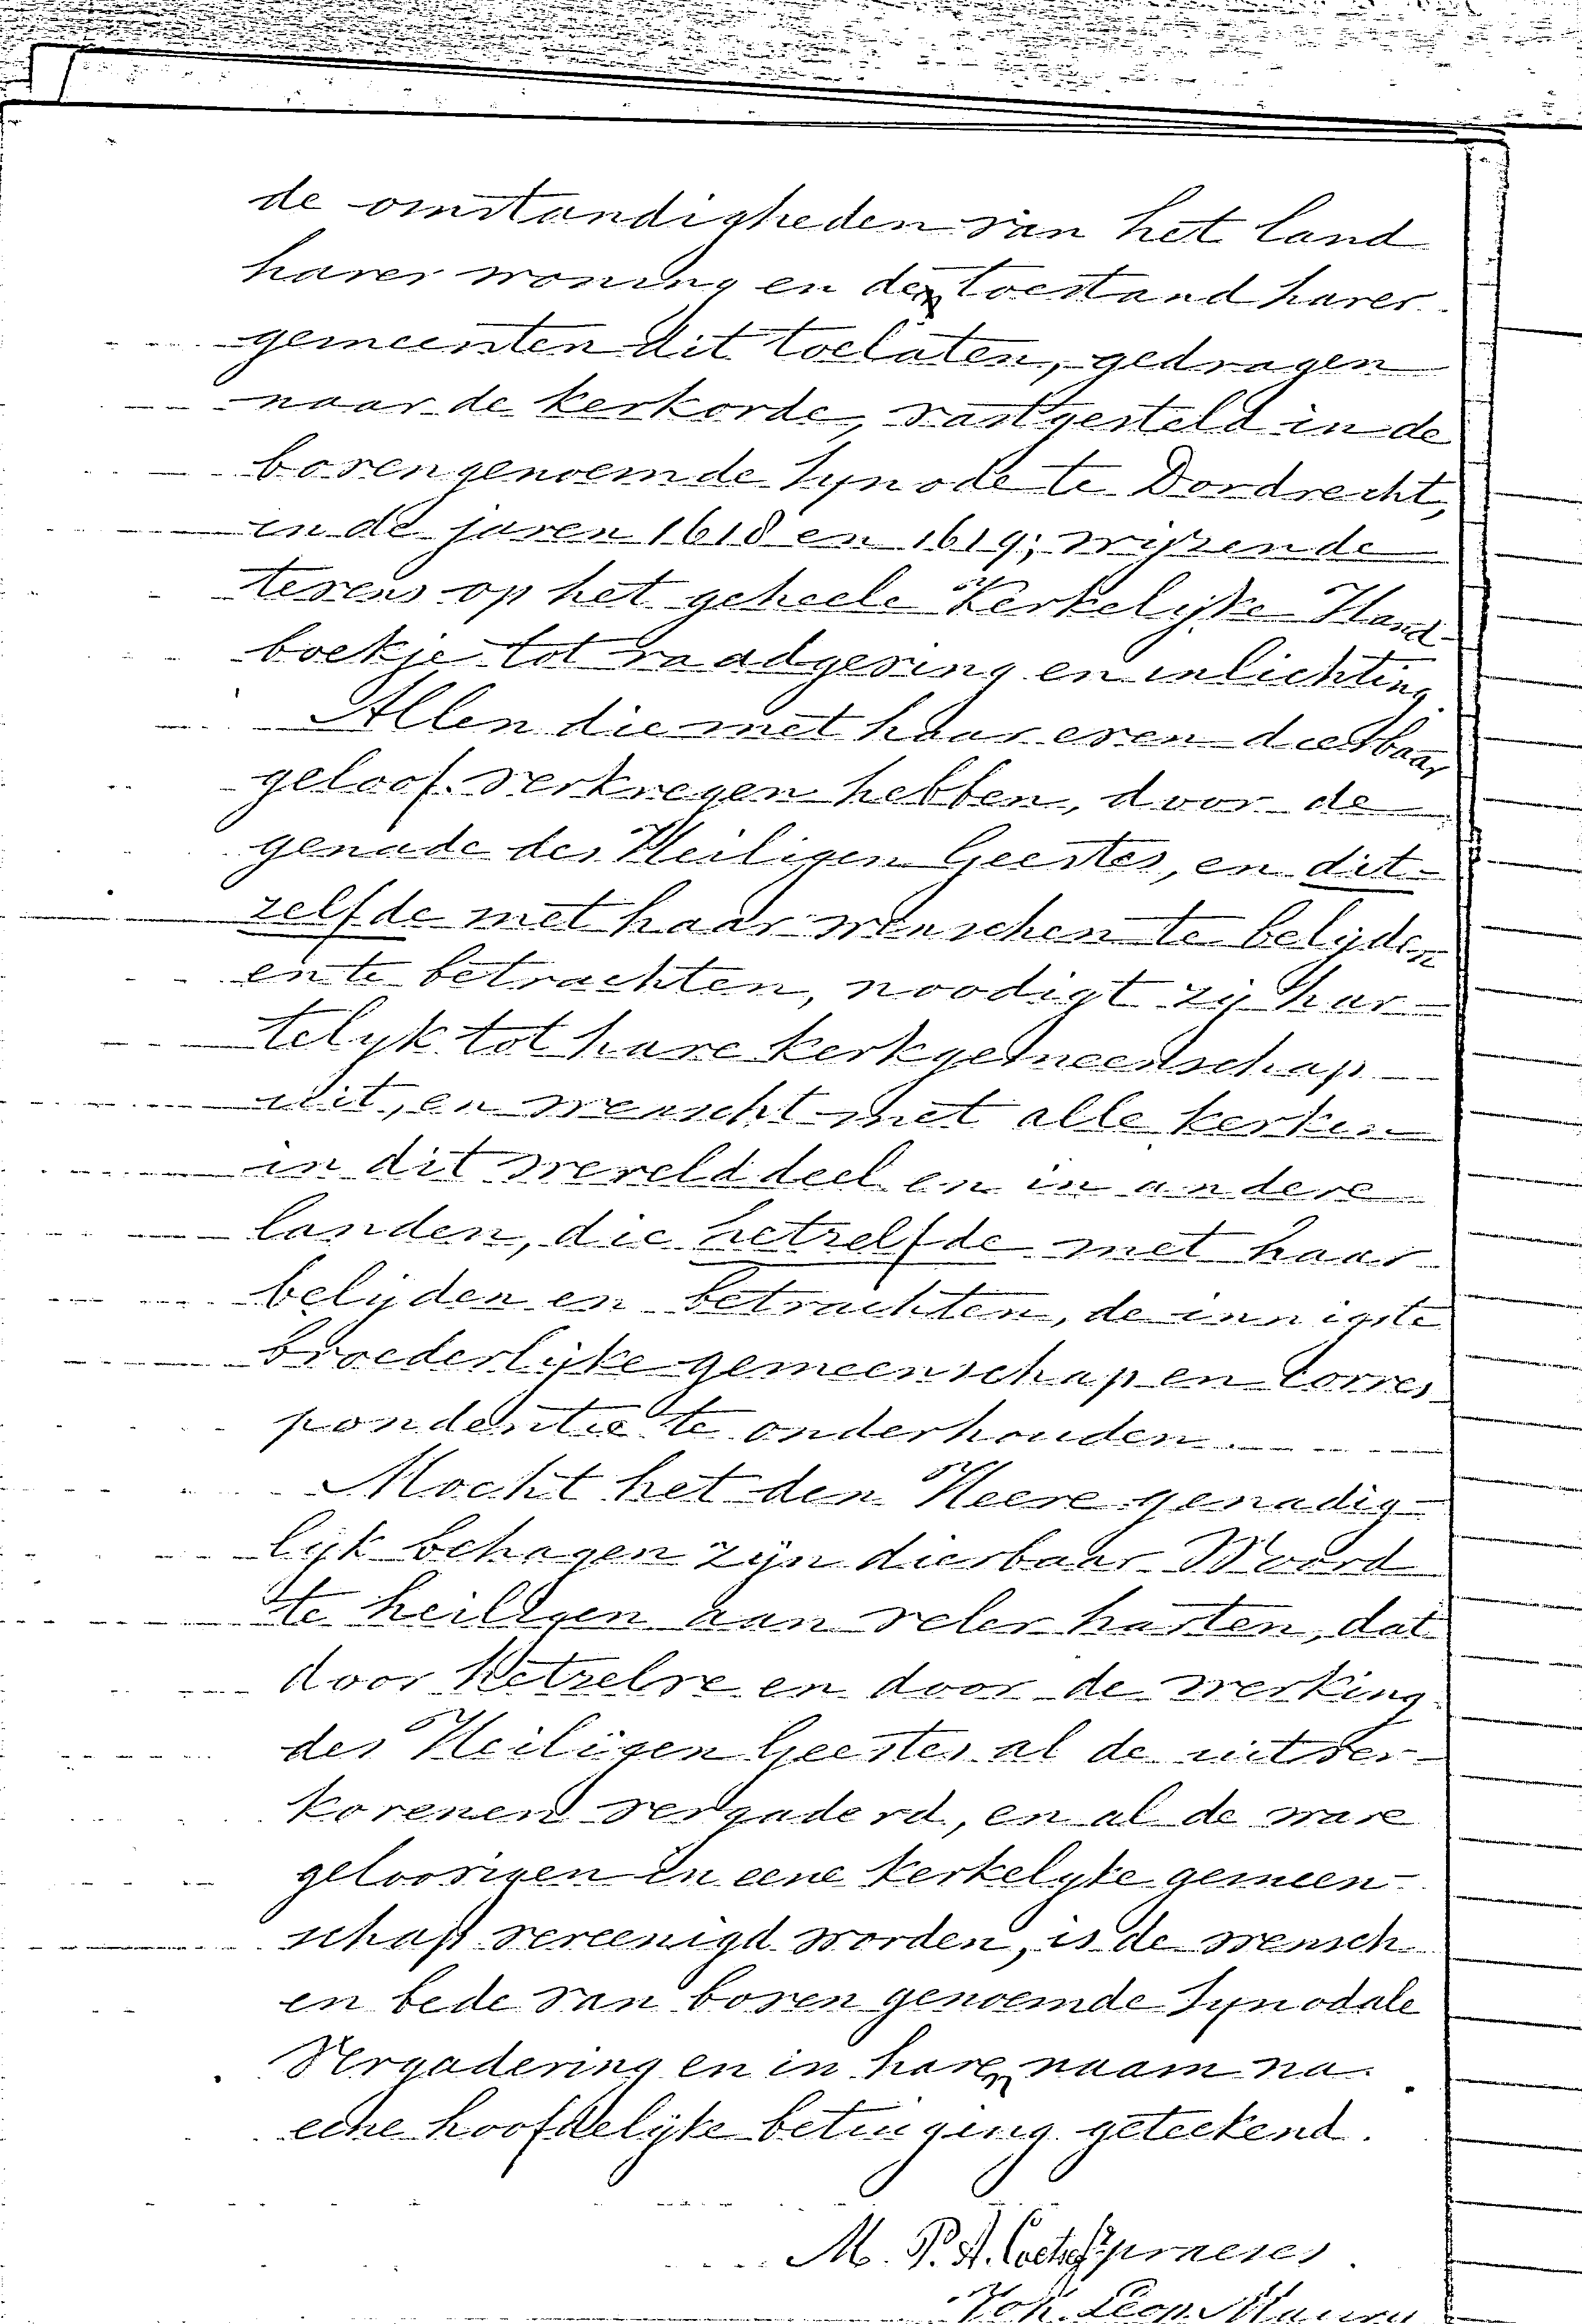 de omstandigheden van het land
harer woning en de toestand harer
gemeenten dit toelaten, gedragen
naar de kerkorde, vastgesteld in de
bovengenoemde Synode te Dordrecht,
in de jaren 1618 en 1619; wijzende
tevens op het geheele Kerkelijke Hand-
boekje tot raadgeving en inlichting.
Allen die met haar even dierbaar
geloof verkregen hebben, door de
genade des Heiligen Geestes, en dit-
zelfde met haar wenschen te belijden
en te betrachten, noodigt zij har-
telijk tot hare kerkgemeenschap
uit, en wenscht met alle kerken
in dit werelddeel en in andere
landen, die hetzelfde met haar
belijden en betrachten, de innigste
broederlijke gemeenschap en corres-
pondentie te onderhouden.
Mocht het den Heere genadig-
lijk behagen zijn dierbaar Woord
te heiligen aan veler harten, dat
door hetzelve en door de werking
des Heiligen Geestes al de uitver-
korenen vergaderd, en al de ware
geloovigen in eene kerkelijke gemeen-
schap vereenigd worden, is de wensch
en bede van boven genoemde Synodale
Vergadering en in haren naam na
eene hoofdelijke betuiging geteekend.
M. P. A. Coetsee
Joh. Leop. Maury